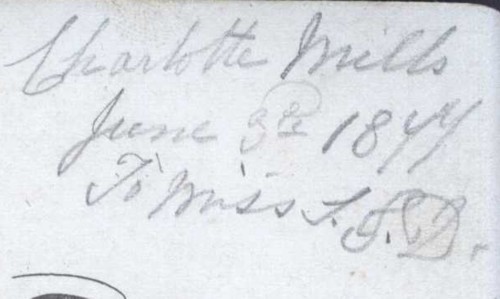 Charlotte Mills
June 3rd 1877
To Miss S. S. D.